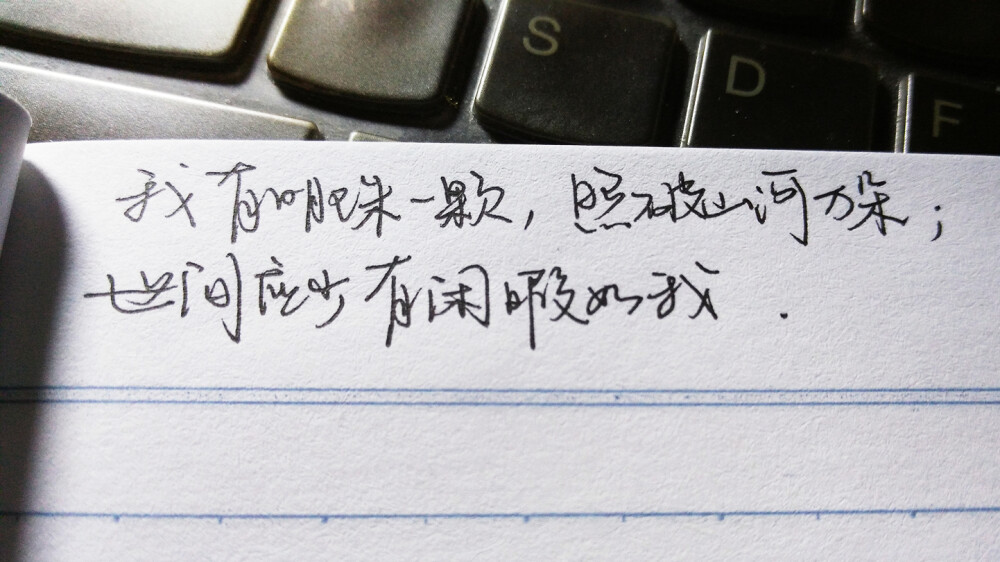 S
D
F
我有明珠一颗，照破山河万朵；
世间应少有闲暇如我.